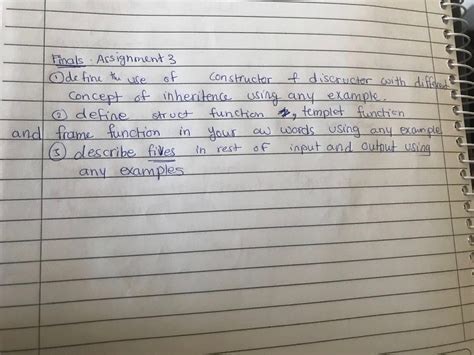 Finals Assignment 3
① define the use of constructor & discructer with different
concept of inheritence using any example.
② define struct function , templet function
and frame function in your ow words using any example
③ describe fives in rest of input and output using
any examples